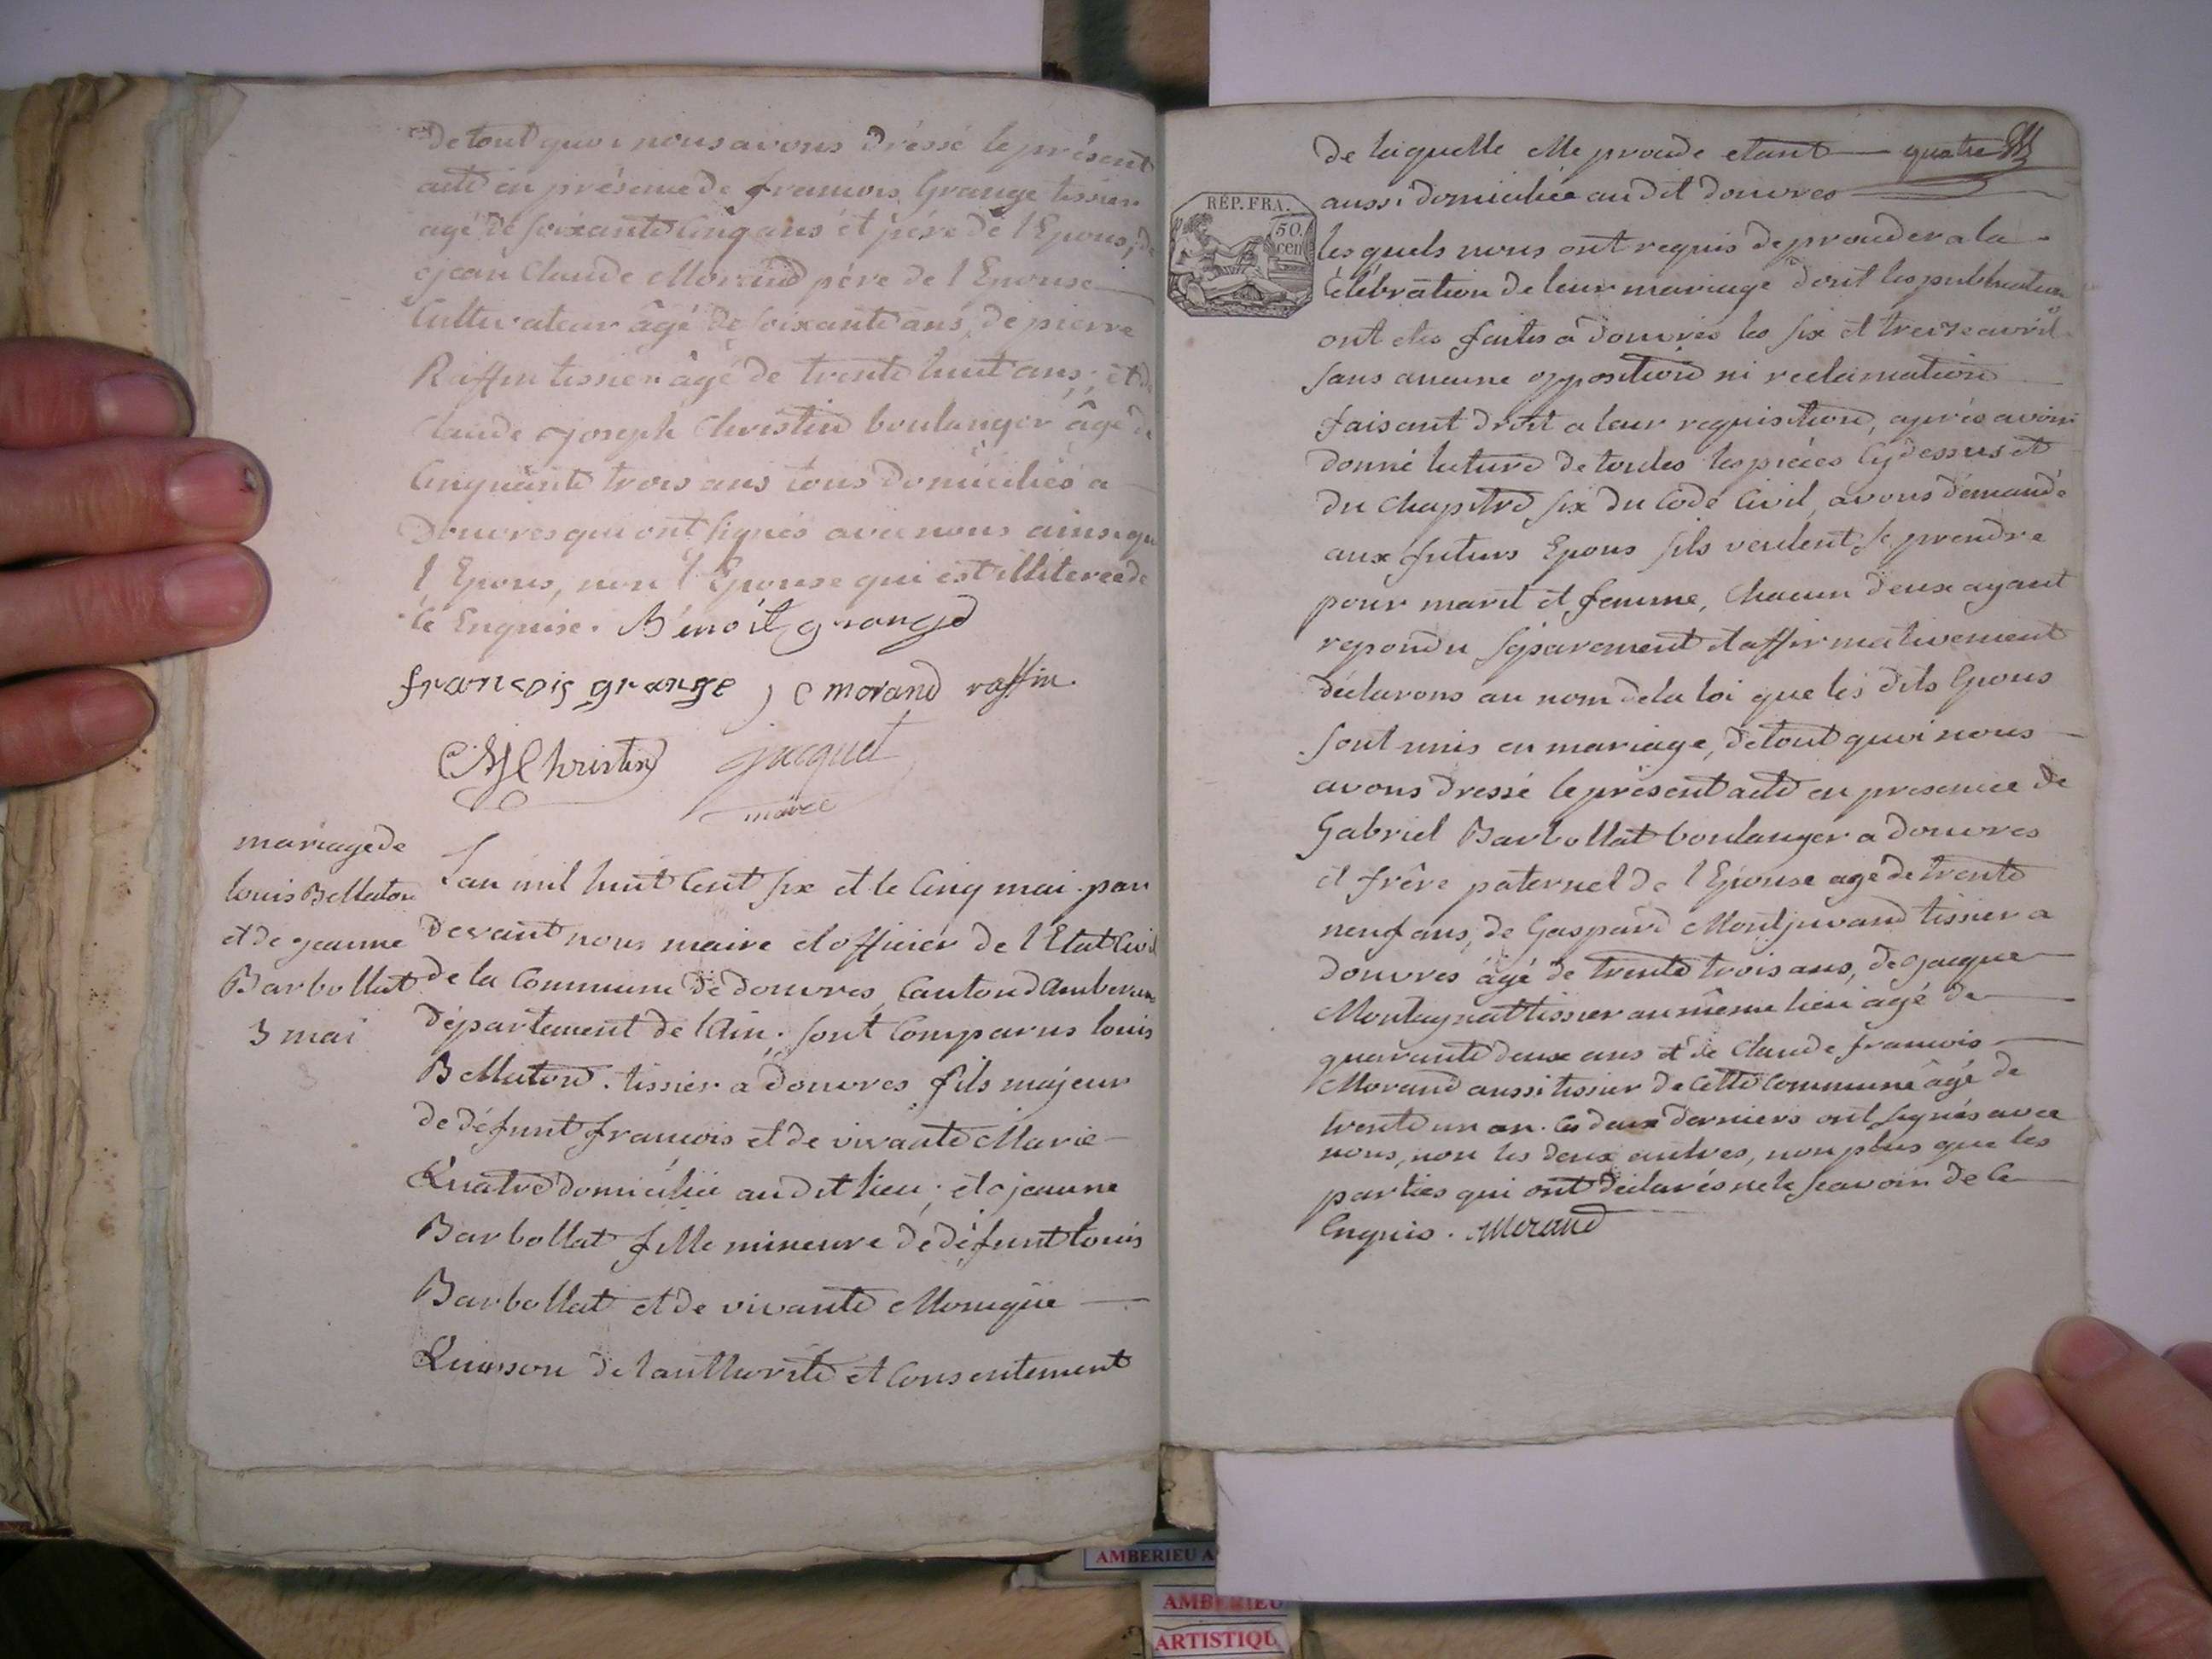 de tout quoi nous avons dréssé le présent
acte en présence de francois Grange tissier
agé de soixante cinq ans et père de l'Epous, de
jean Claude Morand père de l'Epouse
Cultivateur âgé de soixante ans, de pierre
Raffin tissier âgé de trente huit ans, et de
Claude joseph Christin boulanger âgé de
Cinquante trois ans tous domiciliés a
Douvres qui ont signés avec nous ainsi que
l'Epous, non l'Epouse qui est illiterée de
ce Enquise. Bénoit grange
francois grange j c morand raffin
CMJChristin jacquet
maire
mariage de
louis Belleton
et de jeanne
Barbollat
5 mai
L'an mil huit Cent six et le Cinq mai par
devant nous maire et officier de l'Etat Civil
de la Commune de douvres, Canton d'amberieu
département de l'Ain, sont Comparus louis
Belleton tissier a douvres fils majeur
de défunt francois et de vivante Marie
Quatre domiciliée au dit lieu; et jeanne
Barbollat fille mineure de défunt louis
Barbollat et de vivante Monique
Quinson de l'authorité et Consentement
de laquelle elle procede etant quatre
aussi domiciliée au dit douvres
RÉP. FRA.
50.
cen
lesquels nous ont requis de proceder a la
Célébration de leur mariage dont les publications
ont etés faites a douvres les six et treize avril
sans aucune opposition ni reclamation
faisant droit a leur requisition, après avoir
donné lecture de toutes les pièces Cy dessus et
du Chapitre six du Code Civil, avons demandé
aux futurs Epous s'ils veulent se prendre
pour marit et femme, Chacun d'eux ayant
repondu séparement et affirmativement
déclarons au nom de la loi que les dits Epous
sont unis en mariage, de tout quoi nous
avons dressé le présent acte en presence de
Gabriel Barbollat boulanger a douvres
et frêre paternel de l'Epouse agé de trente
neuf ans, de Gaspard Montjuvand tissier a
douvres âgé de trente trois ans, de jacque
Montagnat tissier au même lieu agé de
quarante deux ans et de Claude francois
Morand aussi tissier de cette Commune âgé de
trente un an. Ces deux derniers ont signés avec
nous, non les deux autres, non plus que les
parties qui ont déclarés ne le scavoir de Ce
Enquis. Morand
AMBERIEU A
AMBERIEU
ARTISTIQU